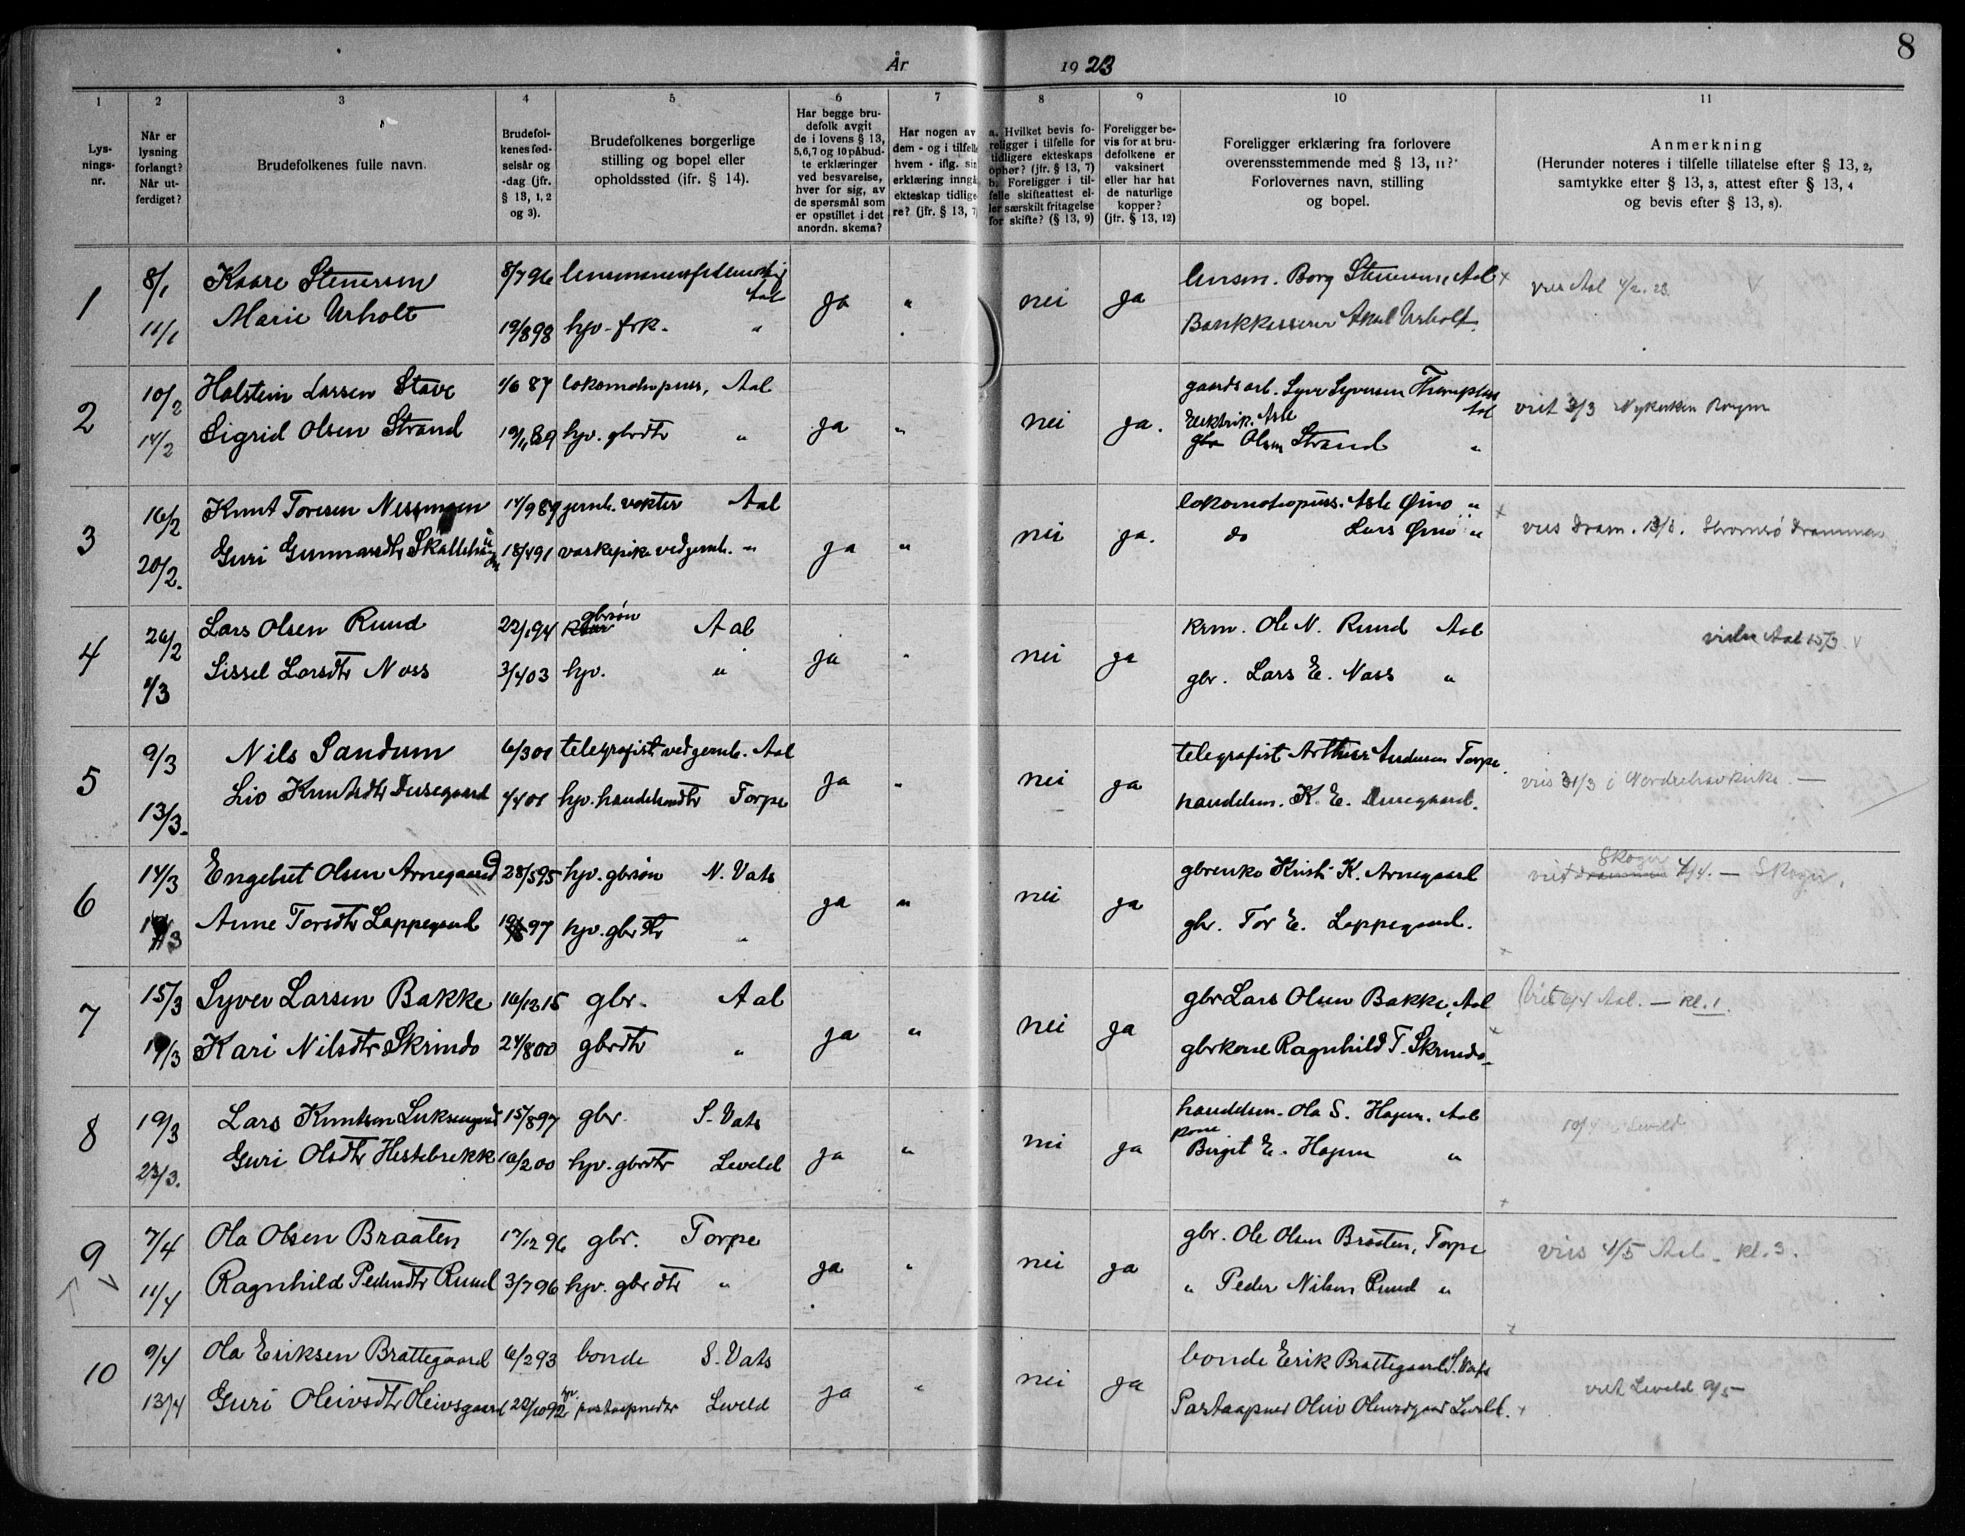 År 1923
8
1 2 3 4 5 6 7 8 9 10 11
Lysningsnr.
Når er lysning forlangt? Når utferdiget?
Brudefolkenes fulle navn.
Brudefolkenes fødselsår og -dag (jfr. § 13, 1, 2 og 3).
Brudefolkenes borgerlige stilling og bopel eller opholdssted (jfr. § 14).
Har begge brudefolk avgit de i lovens § 13, 5, 6, 7 og 10 påbudte erklæringer ved besvarelse, hver for sig, av de spørsmål som er opstillet i det anordn. skema?
Har nogen av dem - og i tilfelle hvem - iflg. sin erklæring inngå ekteskap tidligere? (jfr. § 13, 7)
a. Hvilket bevis foreligger i tilfelle for tidligere ekteskaps ophør? (jfr. § 13, 7) b. Foreligger i tilfelle skifteattest eller særskilt fritagelse for skifte? (§ 13, 9)
Foreligger bevis for at brudefolkene er vaksinert eller har hat de naturlige kopper? (jfr. § 13, 12)
Foreligger erklæring fra forlovere overensstemmende med § 13, 11? Forlovernes navn, stilling og bopel.
Anmerkning (Herunder noteres i tilfelle tillatelse efter § 13, 2, samtykke efter § 13, 3, attest efter § 13, 4 og bevis efter § 13, 8).
1 8/1 Kaare Stenersen 8/7 96 Aal ja " nei ja lensm. Borg Stenersen, Aal
11/1 Marie Urholt 19/8 98 hjv. frk. " Bankkasserer Aksel Urholt.
2 10/2 Holstein Larsen Stave 1/6 87 lokomotivpuss, Aal ja " nei ja. gaardsarb. Syver Syversen Aal vist 3/3 Nykirken Bergen
14/2 Sigrid Olsen Strand 89 hjv. gbrdtr " Elektrik. Asle Olsen Strand "
3 16/2 Knut Toresen Nessmoen 14/9 89 jernb. vokter Aal ja " nei ja. lokomotivpuss. Asle Øino " vies Dram. 13/3. Strømsø Drammen
20/2. Guri Gunnarsdtr 18/4 91 vaskepike ved jernb. " do Lars Øino "
4 26/2 Lars Olsen Ruud 22/1 94 gbrsøn Aal ja " nei ja krm. Ole N. Ruud Aal Aal 15/3
1/3 Sissel Larsdtr Noss 3/4 03 hjv. " gbr. Lars E. Noss "
5 9/3 Nils Sandum 6/3 01 telegrafist ved jernb. Aal ja " nei ja telegrafist Arthur Andersen Torpe. vies 31/3 i Nordrehovkirke. —
13/3. Liv Knutsdtr Dusegaard 4/4 01 hjv. handelsmdtr Torpe handelsm. K. E. Dusegaard.
6 14/3 Engebret Olsen Arnegaard 28/5 95 hjv. gbrsøn N. Vats ja " nei ja gbrenke Kristi K. Arnegaard viet Skoger 4/4. — Skoger.
Anne Torsdtr Lappegaard 97 hjv. gbrdtr " gbr. Tor E. Lappegaard.
7 15/3 Syver Larsen Bakke gbr. Aal ja " nei ja gbr Lars Olsen Bakke, Aal Viet 6/4 Aal. — kl. 1.
19/3 Kari Nilsdtr Skrindo 24/8 00 gbrdtr " gbrkone Ragnhild T. Skrindo
8 19/3 Lars Knutsen 15/8 97 gbr. S. Vats ja " nei ja handelsm. Ola S. Hagen. Aal 10/4 Leveld
23/3. Guri Olsdtr Hestebrekk 16/2 00 hjv. gbrdtr Leveld kone Birgit E. Hagen "
9 7/4 Ola Olsen Braaten 17/12 96 gbr. Torpe ja " nei ja gbr. Ole Olsen Braaten, Torpe vies 4/5 Aal — kl. 3.
11/4 Ragnhild Pedersdtr Ruud 3/7 96 hjv. gbrdtr " " Peder Nilsen Ruud "
10 9/4 Ola Eriksen Brattegaard 6/2 93 bonde S. Vats ja " nei ja bonde Erik Brattegaard S. Vats viet Leveld 9/5 —
13/4 Guri Oleivsdtr Oleivsgaard 22/10 92 hjv. postaapnerdtr Leveld Postaapner Oleiv Oleivsgaard Leveld.